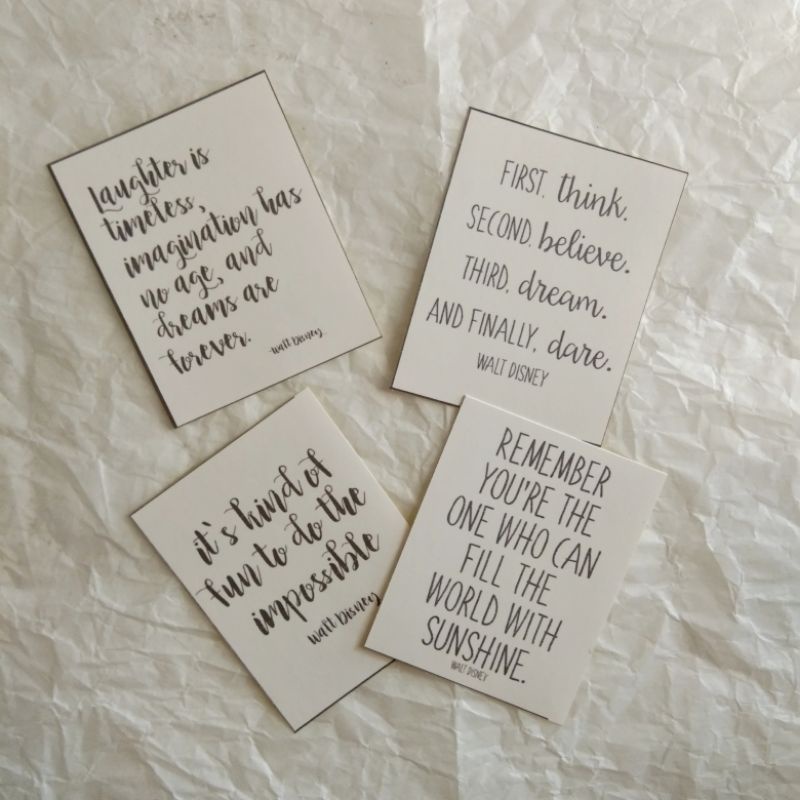 Laughter is
timeless,
imagination has
no age, and
dreams are
forever.
-Walt Disney
FIRST, think.
SECOND, believe.
THIRD, dream.
AND FINALLY, dare.
WALT DISNEY
it's kind of
fun to do the
impossible
Walt Disney
REMEMBER
YOU'RE THE
ONE WHO CAN
FILL THE
WORLD WITH
SUNSHINE.
WALT DISNEY